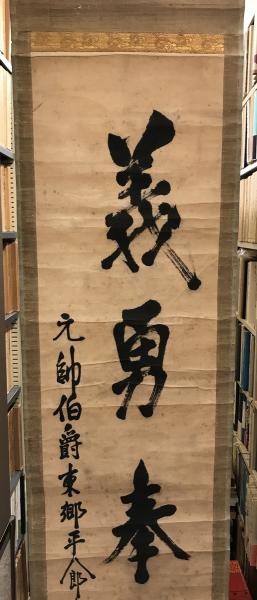 義勇奉
元帥伯爵東郷平八郎